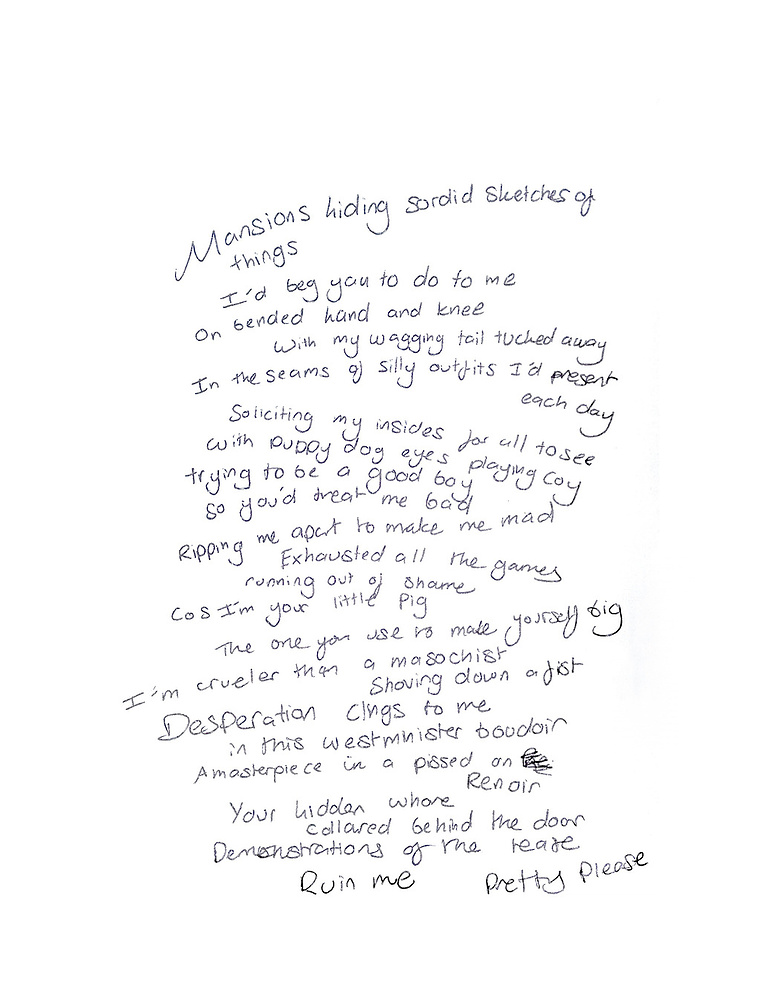 Mansions hiding sordid sketches of
things
I'd beg you to do to me
On bended hand and knee
With my wagging tail tucked away
In the seams of silly outfits I'd present
each day
Soliciting my insides for all to see
with puppy dog eyes playing coy
trying to be a good boy
so you'd treat me bad
Ripping me apart to make me mad
Exhausted all the games
running out of shame
cos I'm your little Pig
The one you use to make yourself big
I'm crueler than a masochist
Shoving down a fist
Desperation clngs to me
in this westminister boudoir
A masterpiece in a pissed on
Renoir
Your hidden whore
collared behind the door
Demonstrations of the tease
Ruin me Pretty Please